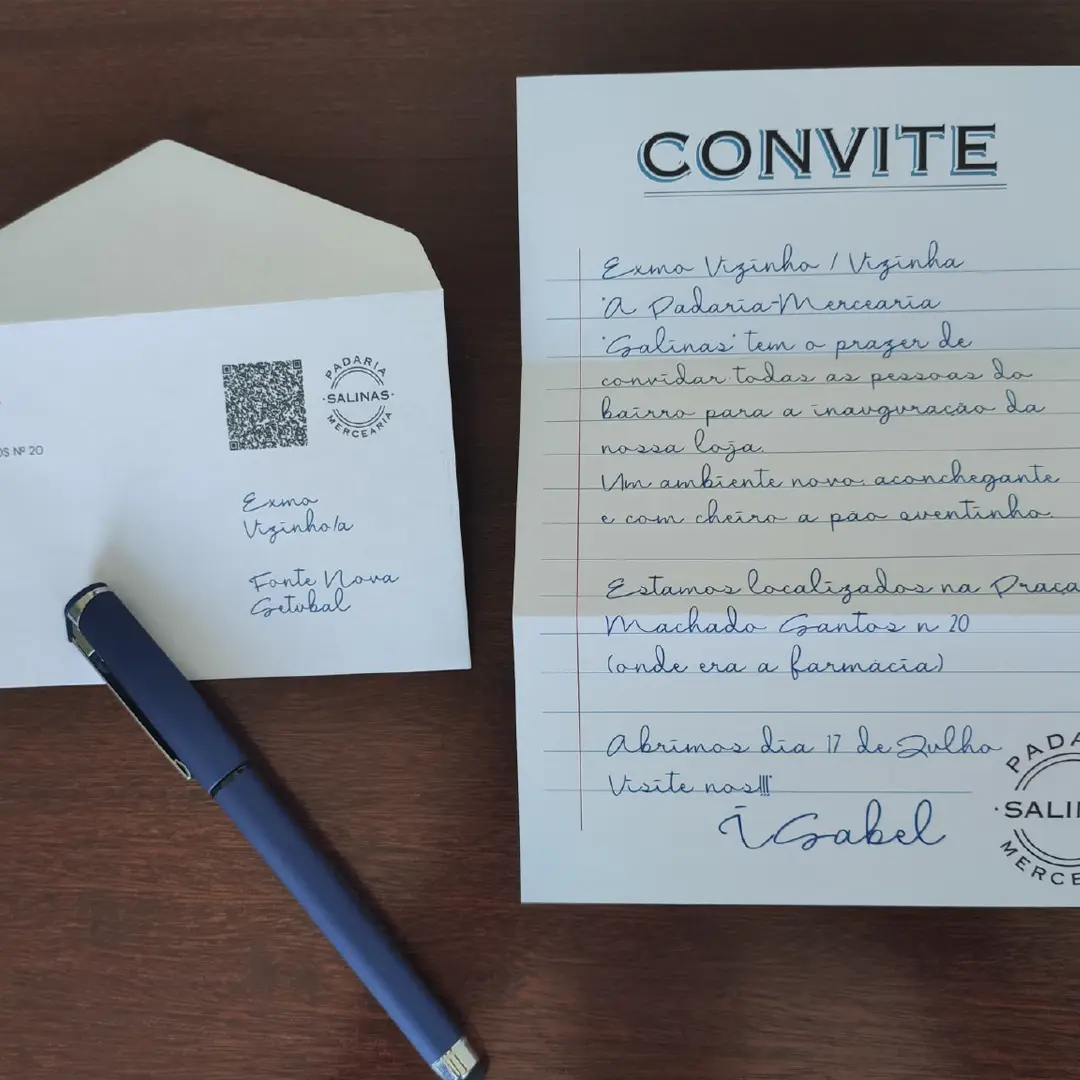 OS Nº 20
PADARIA
·SALINAS·
MERCEARIA
Exmo
Vizinho/a
Fonte Nova
Setubal
CONVITE
Exmo Vizinho / Vizinha
"A Padaria-Mercearia
"Salinas" tem o prazer de
convidar todas as pessoas do
bairro para a inauguração da
nossa loja.
Um ambiente novo, aconchegante
e com cheiro a pão quentinho.
Estamos localizados na Praça
Machado Santos n 20
(onde era a farmácia)
Abrimos dia 17 de Julho
Visite nos!!!
Isabel
PADA
·SALIN
MERCE